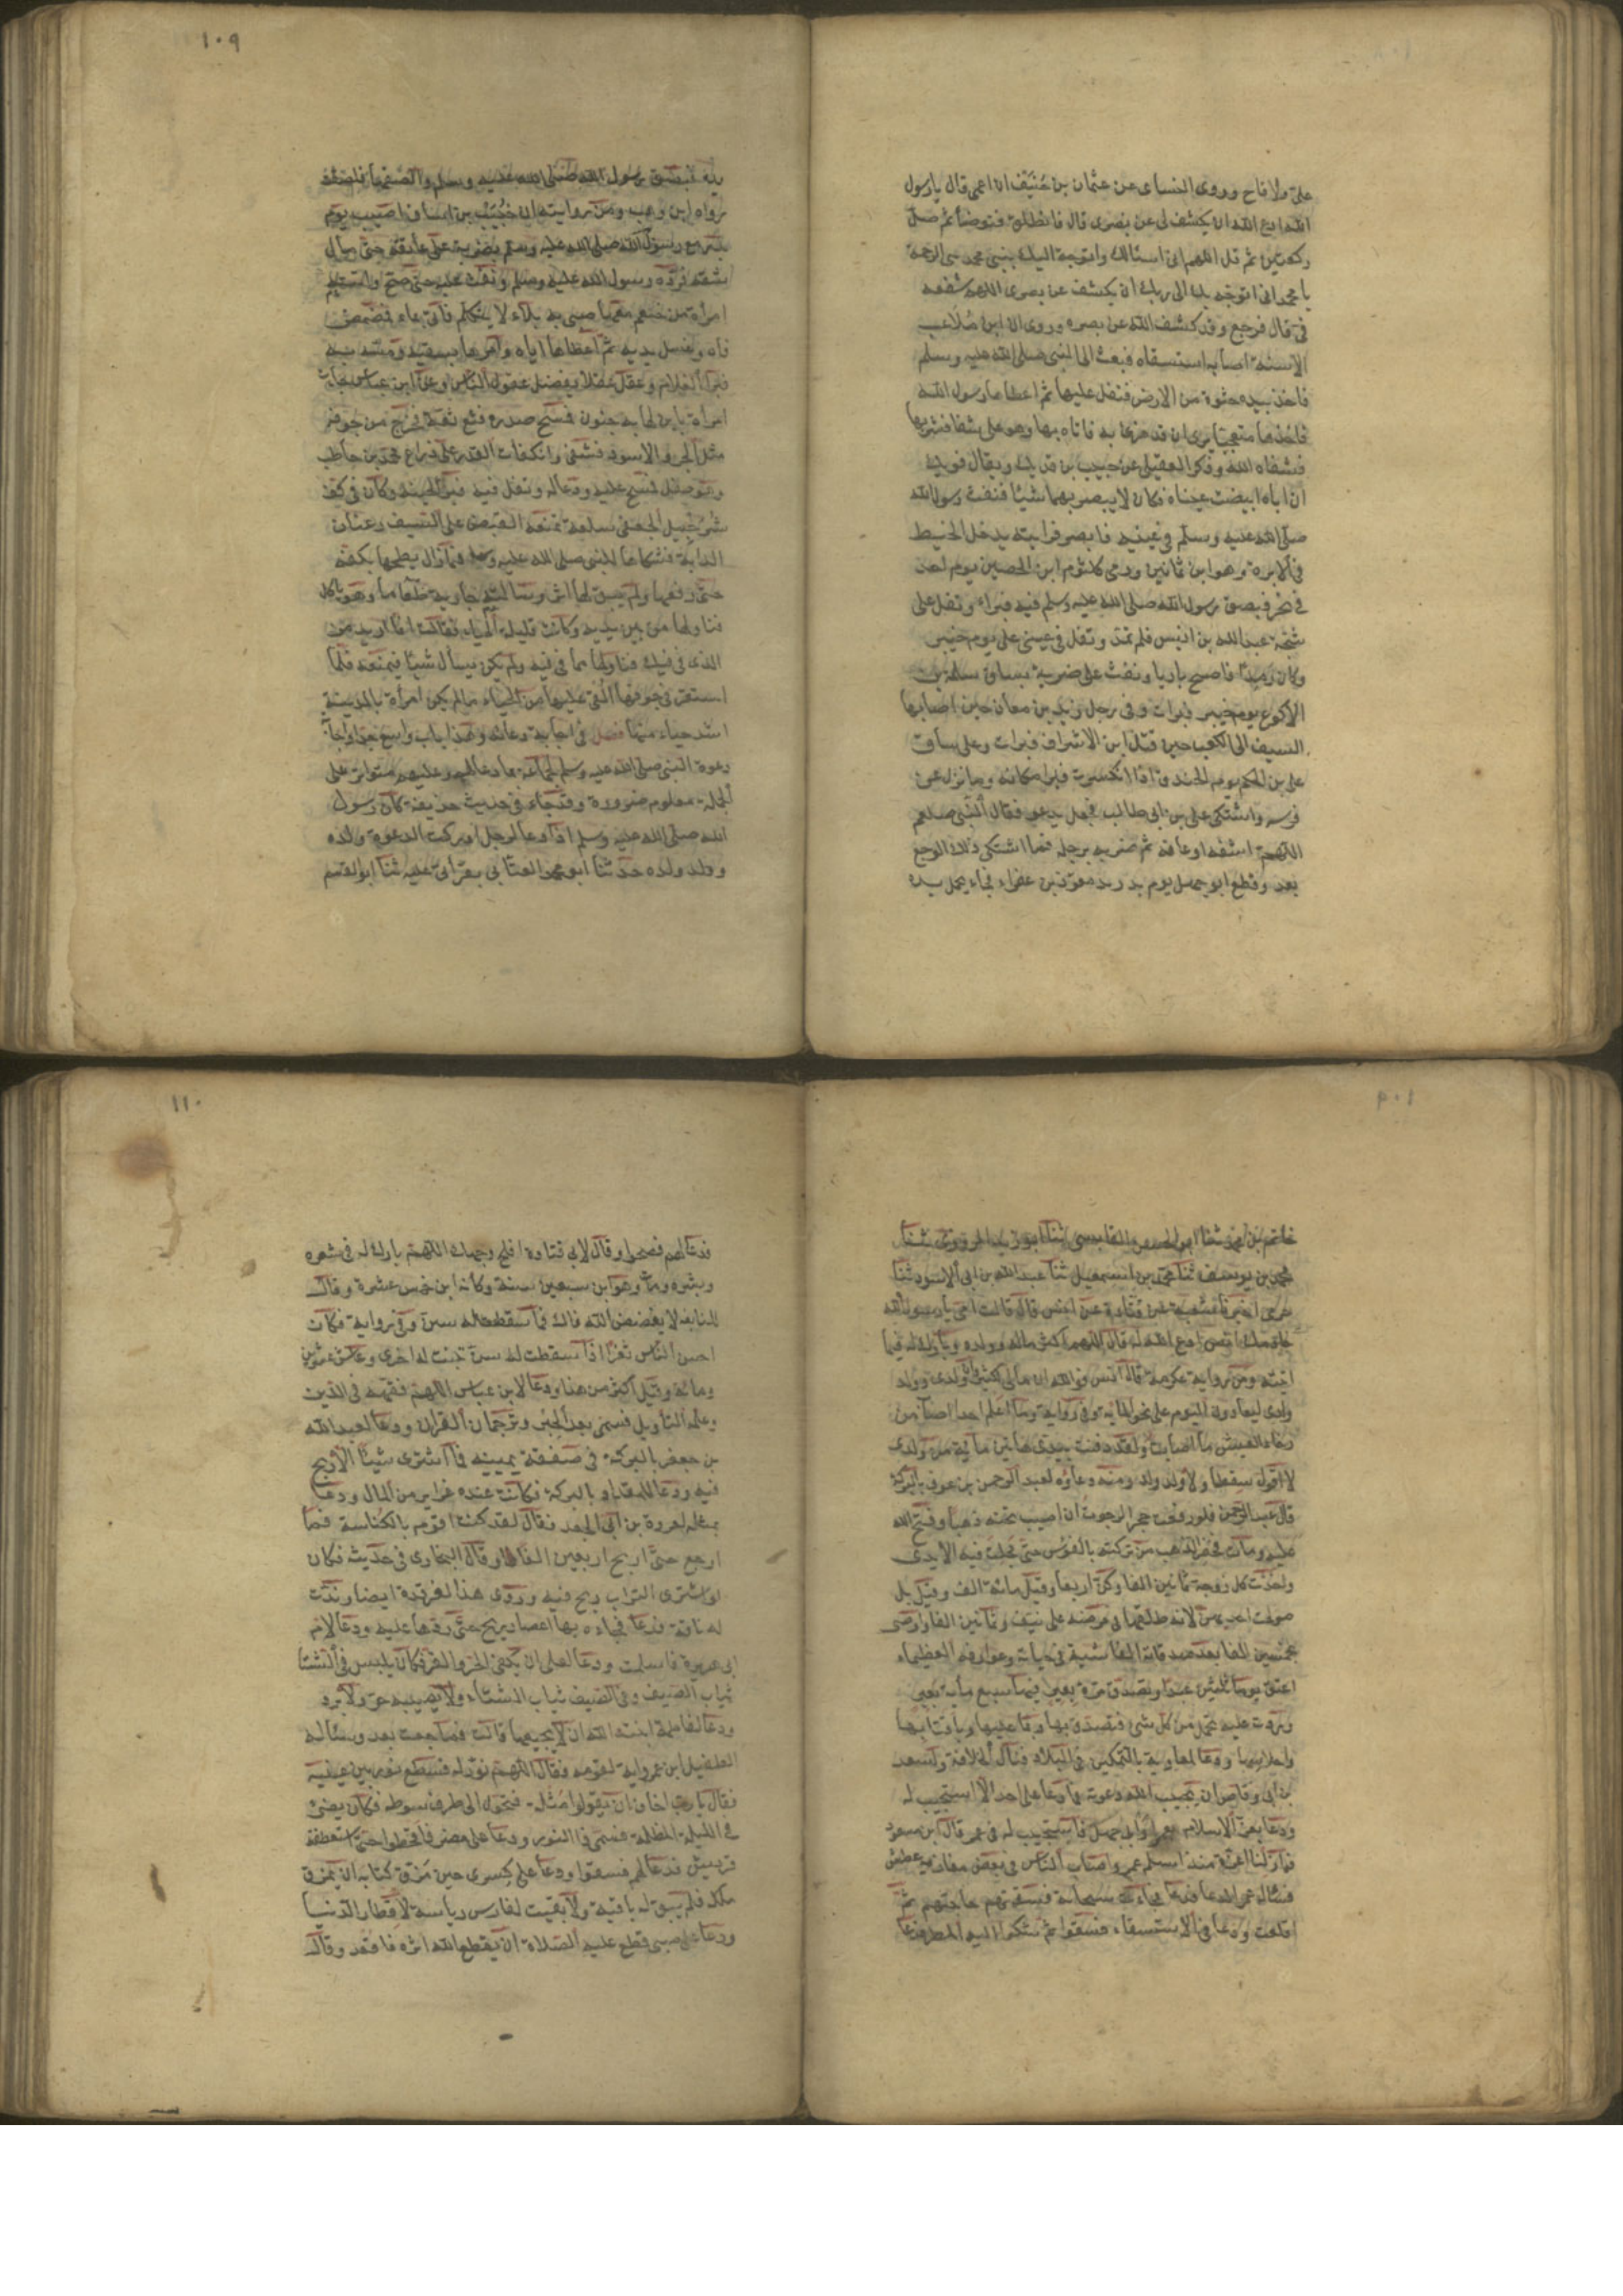 على ولا قاح وروى النساى عن عثمان بن حُنَيْف ان اعمى قال يا رسول
الله ادع الله ان يكشف لى عن بصرى قال فانطلق فتوضأ ثم صلّ
ركعتين ثم قل اللهم انى اسئالك واتوجه اليك بنبى محمد نبى الرحمة
يا محمد انى اتوجه بك الى ربك ان يكشف عن بصرى اللهم شفعه
فىّ قال فرجع وقد كشف الله عن بصره وروى ان ابن مُلاعب
الاسنة اصابه استسقاء فبعث الى النبى صلى الله عليه وسلم
فاخذ بيده حثوة من الارض فتفل عليها ثم اعطاها رسول الله
فاخذها متعجبا يرى ان قد هزئ به فاتاه بها وهو على شفا فشربها
فشفاه الله وذكر العقيلى عن حبيب بن فديك ويقال فويك
ان اباه ابيضت عيناه فكان لا يبصر بهما شيئا فنفث رسول الله
صلى الله عليه وسلم فى عينيه فابصر فرايته يدخل الخيط
فى الابرة وهو ابن ثمانين ورمى كلثوم ابن الحصين يوم احد
فى نحره فبصق رسول الله صلى الله عليه وسلم فيه فبراء وتفل على
شجة عبد الله بن انيس فلم تمدّ وتفل فى عينى على يوم خيبر
وكان رمِدًا فاصبح باريا ونفث على ضربة بساق سلمة بن
الاكوع يوم خيبر فبرات وفى رجل زيد بن معاذ حين اصابها
السيف الى الكعب حين قتل ابن الاشراف فبرات وعلى ساق
على بن الحكم يوم الخندق اذا انكسرت فبرا مكانه وما نزل عن
فرسه واشتكى على بن ابى طالب فجعل يدعو فقال النبى صلعم
اللهم اشفه او عافه ثم ضربه برجله فما اشتكى ذلك الوجع
بعد وقطع ابو جهل يوم بدر يد معوّذ بن عفراء فجاء يحمل يده
١٠٩
يده فبصق رسول الله صلى الله عليه وسلم والصقها فلصقت
رواه ابن وهب ومن روايته ان خُبَيْب بن اساف اصيب يوم
بدر مع رسول الله صلى الله عليه وسلم بضربة على عاتقه حتى مال
شقه فرده رسول الله عليه وسلم ونفث عليه حتى صحّ واتته
امراة من خثعم معها صبى به بلاء لا يتكلم فاتى بماء فمضمض
فاه وغسل يديه ثم اعطاها اياه وامرها بسقيه ومسّه به
فبرا الغلام وعقل عقلا يفضل عقول الناس وعن ابن عباس جاءت
امراة بابن لها به جنون فمسح صدره فثع ثعة فخرج من جوفه
مثل الجرو الاسود فشفى وانكفات القدر على ذراع محمد بن حاطب
وهو طفل فمسح عليه ودعا له وتفل فيه فبرا لحينه وكان فى كف
شُرحبيل الجعفى سلعة تمنعه القبض على السيف وعنان
الدابة فشكاها للنبى صلى الله عليه وسلم فما زال يطحنها بكفه
حتى رفعها ولم يبق لها اثر وسالته جارية طعاما وهو ياكل
فناولها من بين يديه وكانت قليلة الحياء فقالت انما اريد من
الذى فى فيك فناولها ما فى فيه ولم يكن يسأل شيئا فيمنعه فلما
استقر فى جوفها القى عليها من الحياء ما لم يكن امراة بالمدينة
اشد حياء منها فصل فى اجابة دعائه وهذا باب واسع جدا واجابة
دعوة النبى صلى الله عليه وسلم لجماعة بما دعا لهم وعليهم متواتر على
الجملة معلوم ضرورة وقد جاء فى حديث حذيفة كان رسول
الله صلى الله عليه وسلم اذا دعا لرجل ادركت الدعوة ولده
وولد ولده حدثنا ابو محمد العتابى بقراتى عليه ثنا ابو القسم
حاتم بن محمد ثنا ابو الحسن القابسى ثنا ابو زيد المروزى ثنا
محمد بن يوسف ثنا محمد بن اسمعيل ثنا عبد الله بن ابى الاسود ثنا
حرمى اخبرنا شعبة عن قتادة عن انس قال قالت امى يا رسول الله
خادمك انس ادع الله له قال اللهم اكثر ماله وولده وبارك له فيما
اتيته ومن رواية عكرمة قال انس فوالله ان مالى لكثير وان ولدى وولد
ولدى ليعادون اليوم على نحو الماية وفى رواية وما اعلم احدا اصاب من
رخاء العيش ما اصابت ولقد دفنت بيدى هاتين ماية من ولدى
لا اقول سقطا ولا ولد ولد ومنه دعاؤه لعبد الرحمن بن عوف بالبركة
قال عبد الرحمن فلو رفعت حجرا لرجوت ان اصيب تحته ذهبا وفتح الله
عليه ومات فحفر الذهب من تركته بالفوس حتى مجلت فيه الايدى
واخذت كل زوجة ثمانين الفا وكن اربعا وقيل مائة الف وقيل بل
صولحت احديهن لانه طلقها فى مرضه على نيف وثمانين الفا واوصى
بخمسين الفا بعد صدقاته الفاشية فى حياته وعوارفه العظيمة
اعتق يوما ثلثين عبدا وتصدق مرة بعير فيها سبع ماية بعير
وردت عليه تحمل من كل شئ فتصدق بها وبما عليها وباقتابها
واحلاسها ودعا لمعاوية بالتمكين فى البلاد فنال الخلافة ولسعد
بن ابى وقاص ان يجيب الله دعوته فما دعا على احد الا استجيب له
ودعا بعز الاسلام بعمر او بابى جهل فاستجيب له فى عمر قال ابن مسعود
فما زلنا اعزة منذ اسلم عمر واصاب الناس فى بعض مغازيه عطش
فساله عمر الدعا فدعا فجاءت سحابة فسقتهم حاجتهم ثم
اقلعت ودعا فى الاستسقاء فسقوا ثم شكوا اليه المطر فدعا
١١٠
فدعا لهم فصحوا وقال لابى قتادة افلح وجهك اللهم بارك له فى شعره
وبشره ومات وهو ابن سبعين سنة وكانه ابن خمس عشرة وقال
للنابغة لا يفضض الله فاك فما سقطت له سن وفى رواية فكان
احسن الناس ثغرا اذا سقطت له سن نبتت له اخرى وعاش عشرين
ومائة وقيل اكثر من هذا ودعا لابن عباس اللهم فقهه فى الدين
وعلمه التاويل فسمى بعد الحبر وترجمان القران ودعا لعبد الله
بن جعفر بالبركة فى صفقة يمينه فما اشترى شيئا الا ربح
فيه ودعا للمقداد بالبركة فكانت عنده غراير من المال ودعا
بمثله لعروة بن ابى الجعد فقال لقد كنت اقوم بالكناسة فما
ارجع حتى اربح اربعين الفا وقال البخارى فى حديثه فكان
لو اشترى التراب ربح فيه وروى هذا لغرقدة ايضا وندّت
له ناقة فدعا فجاءه بها اعصار ريح حتى ردها عليه ودعا لام
ابى هريرة فاسلمت ودعا لعلى ان يكفى الحر والقر فكان يلبس فى الشتا
ثياب الصيف وفى الصيف ثياب الشتاء ولا يصيبه حر ولا برد
ودعا لفاطمة ابنته الله ان لا يجيعها قالت فما جعت بعد وسئاله
الطفيل ابن عمرو اية لقومه فقال اللهم نوّر له فسطع نور بين عينيه
فقال يا رب اخاف ان يقولوا مُثلة فتحول الى طرف سوطه فكان يضئ
فى الليلة المظلمة فسمى ذا النور ودعا على مضر فاقحطوا حتى استعطفته
قريش فدعا لهم فسقوا ودعا على كسرى حين مزّق كتابه ان يمزق
ملكه فلم يبق له باقية ولا بقيت لفارس رياسة لاقطار الدنيا
ودعا على صبى قطع عليه الصلاة ان يقطع الله اثره فاقعد وقال